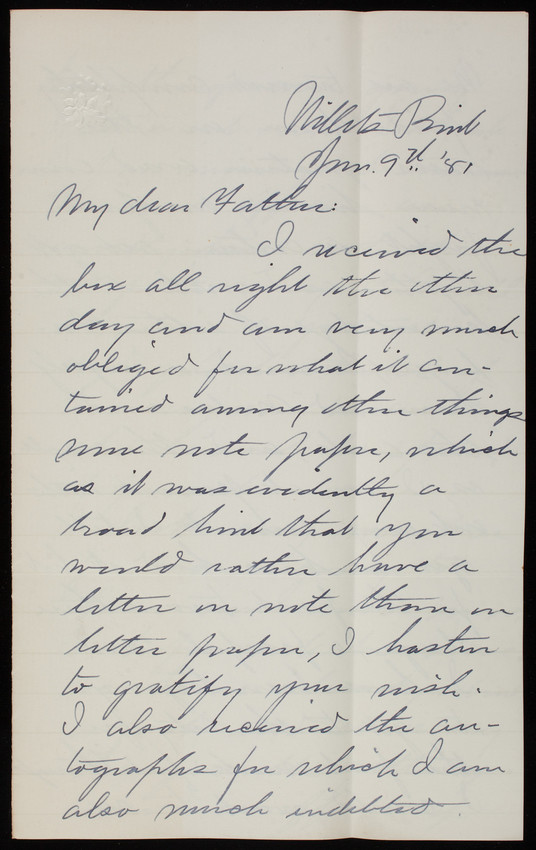 Willets Point
Jan. 9th '81
My dear Father:
I received the
box all right the other
day and am very much
obliged for what it con-
tained among other things
some note paper, which
as it was evidently a
broad hint that you
would rather have a
letter on note than on
letter paper, I hasten
to gratify your wish.
I also received the au-
tographs for which I am
also much indebted.